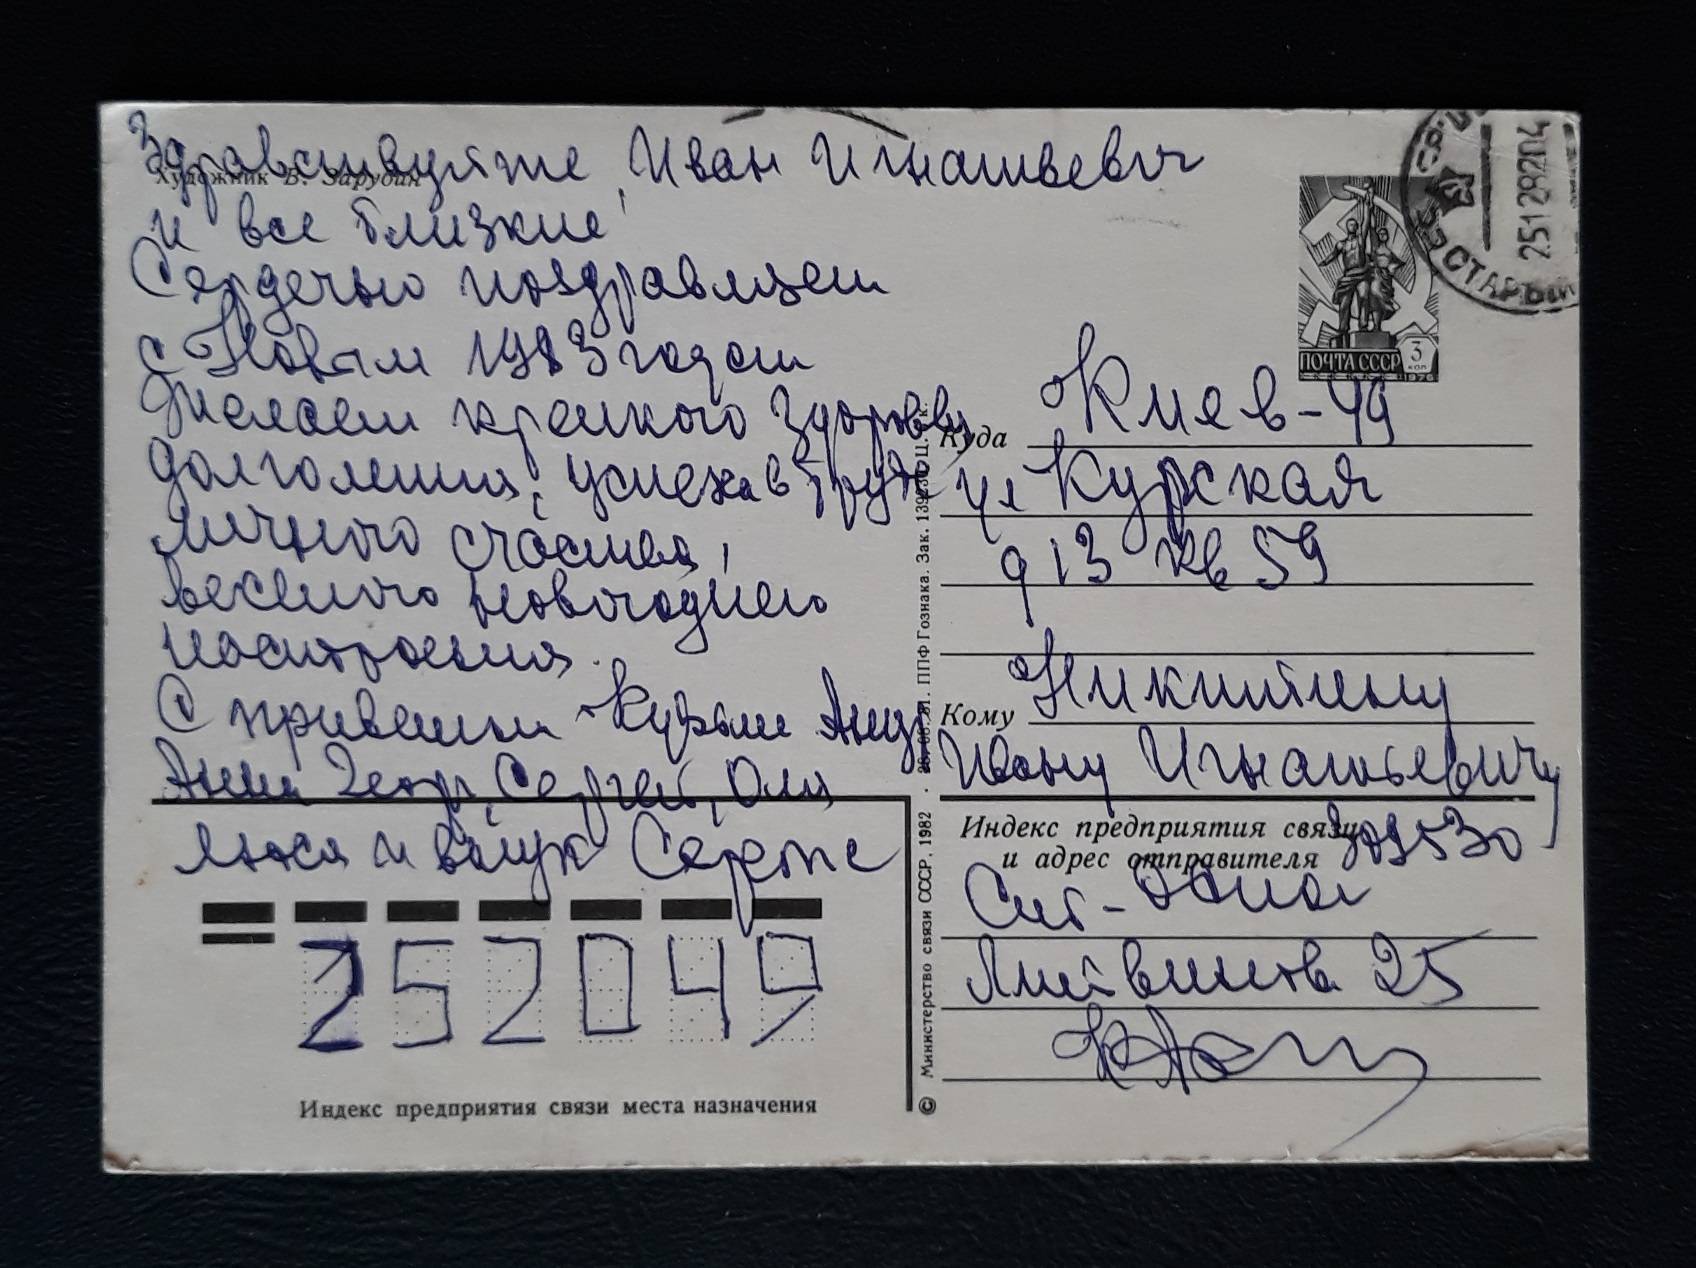 Здравствуйте, Иван Игнатьевич
Художник В. Зарубин
и все близкие
Сердечно поздравляем
с Новым 1983 годом
Желаем крепкого здоровья
долголетия, успеха в труде
личного счастья,
веселого новогоднего
настроения.
С приветом Кузьм Андр
Анна Геор, Сергей, Оля
Люся и внук Сережа
252049
Индекс предприятия связи места назначения
© Министерство связи СССР, 1982. ППФ Гознака. Зак. Ц. к.
СТАРЫЙ
25128204
ПОЧТА СССР 3 коп
1976
Куда Киев-49
ул Курская
д 13 кв 59
Кому Никитину
Ивану Игнатьевичу
Индекс предприятия связи
и адрес отправителя 309530
Ст-Оскол
Литвинова 25